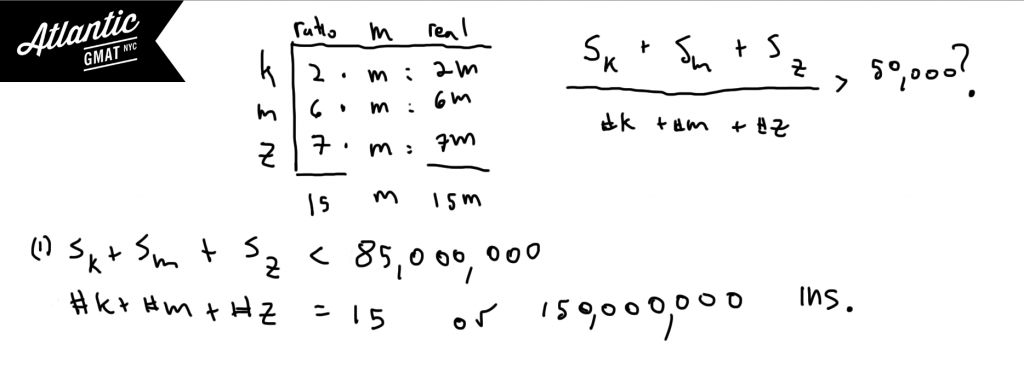 Atlantic
GMAT NYC
ratio m real
k 2 · m : 2m
m 6 · m : 6m
z 7 · m : 7m
15 m 15m
Sk + Sm + Sz
#k + #m + #z
> 50,000?
(1) Sk + Sm + Sz < 85,000,000
#k + #m + #z = 15 or 150,000,000 ins.